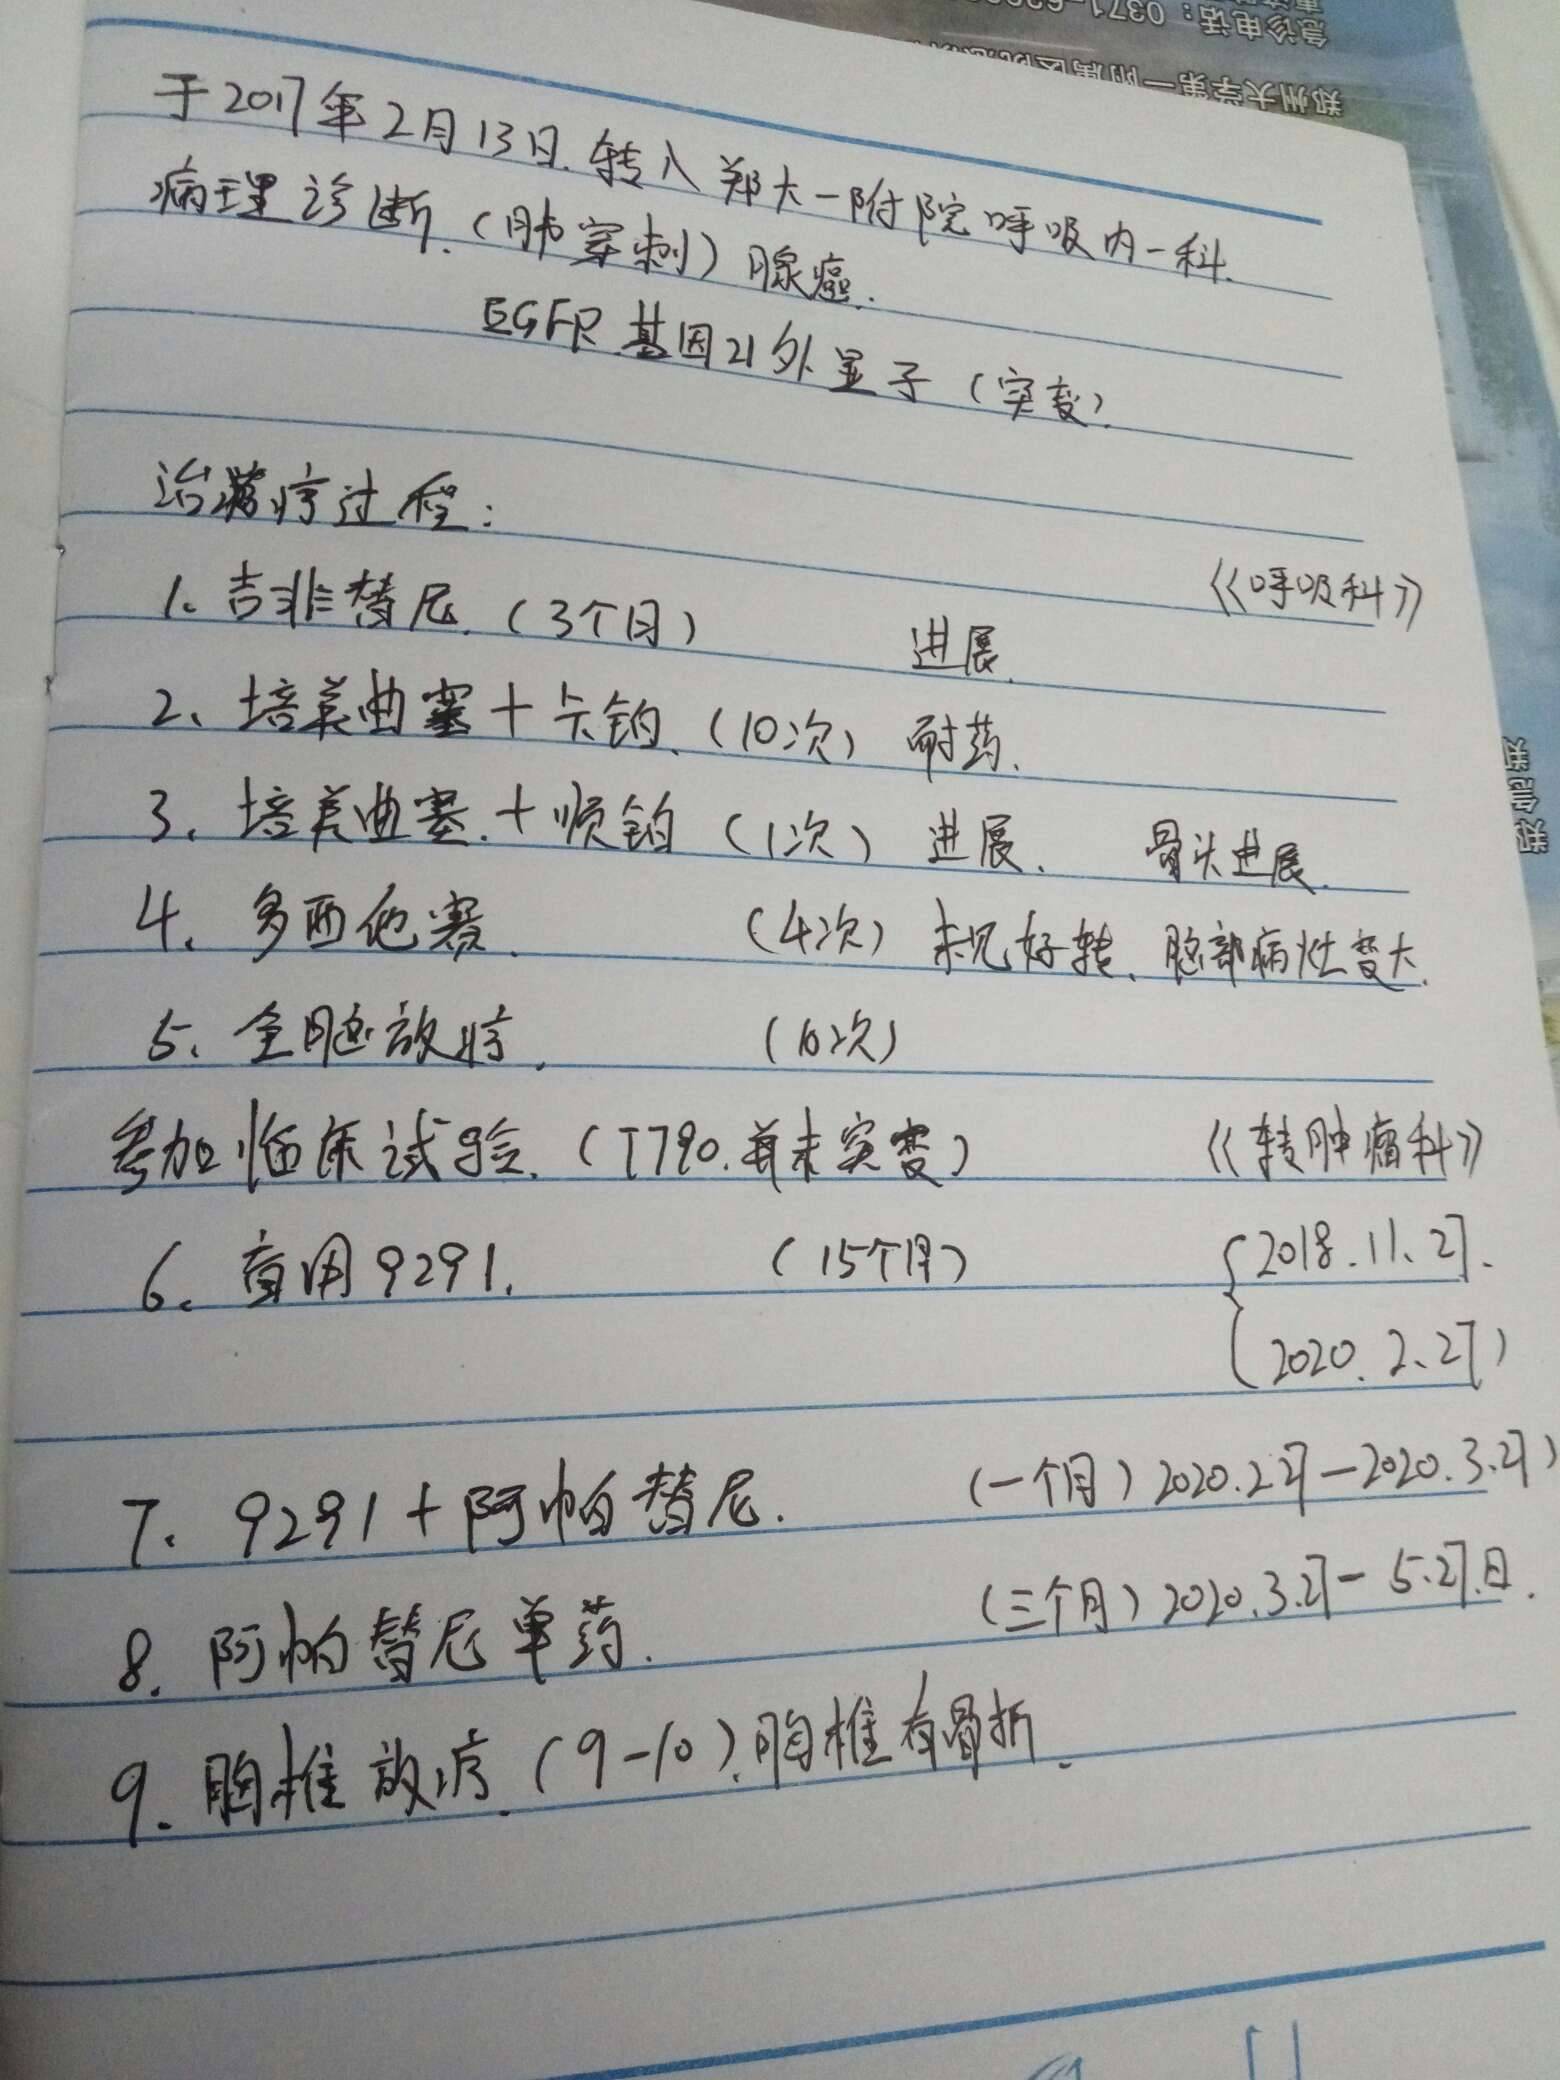 于2017年2月13日.转入郑大一附院呼吸内一科.
病理诊断.(肺穿刺)腺癌.
EGFR 基因21外显子(突变).
治疗过程:
1. 吉非替尼.(3个月) 进展. 《呼吸科》
2、培美曲塞+卡铂.(10次) 耐药.
3. 培美曲塞.+顺铂(1次) 进展. 骨头进展.
4. 多西他赛. (4次) 未见好转. 脑部病灶变大.
5. 全脑放疗. (10次)
参加临床试验.(T790.并未突变) 《转肿瘤科》
6. 盲用9291. (15个月) 2018.11.27.
2020.2.27)
7. 9291+阿帕替尼. (一个月)2020.2.27—2020.3.27)
8. 阿帕替尼单药. (三个月)2020.3.27— 5.27.日.
9. 胸椎放疗.(9-10).胸椎有骨折.
郑州大学第一附属医院
急诊电话:0371-6